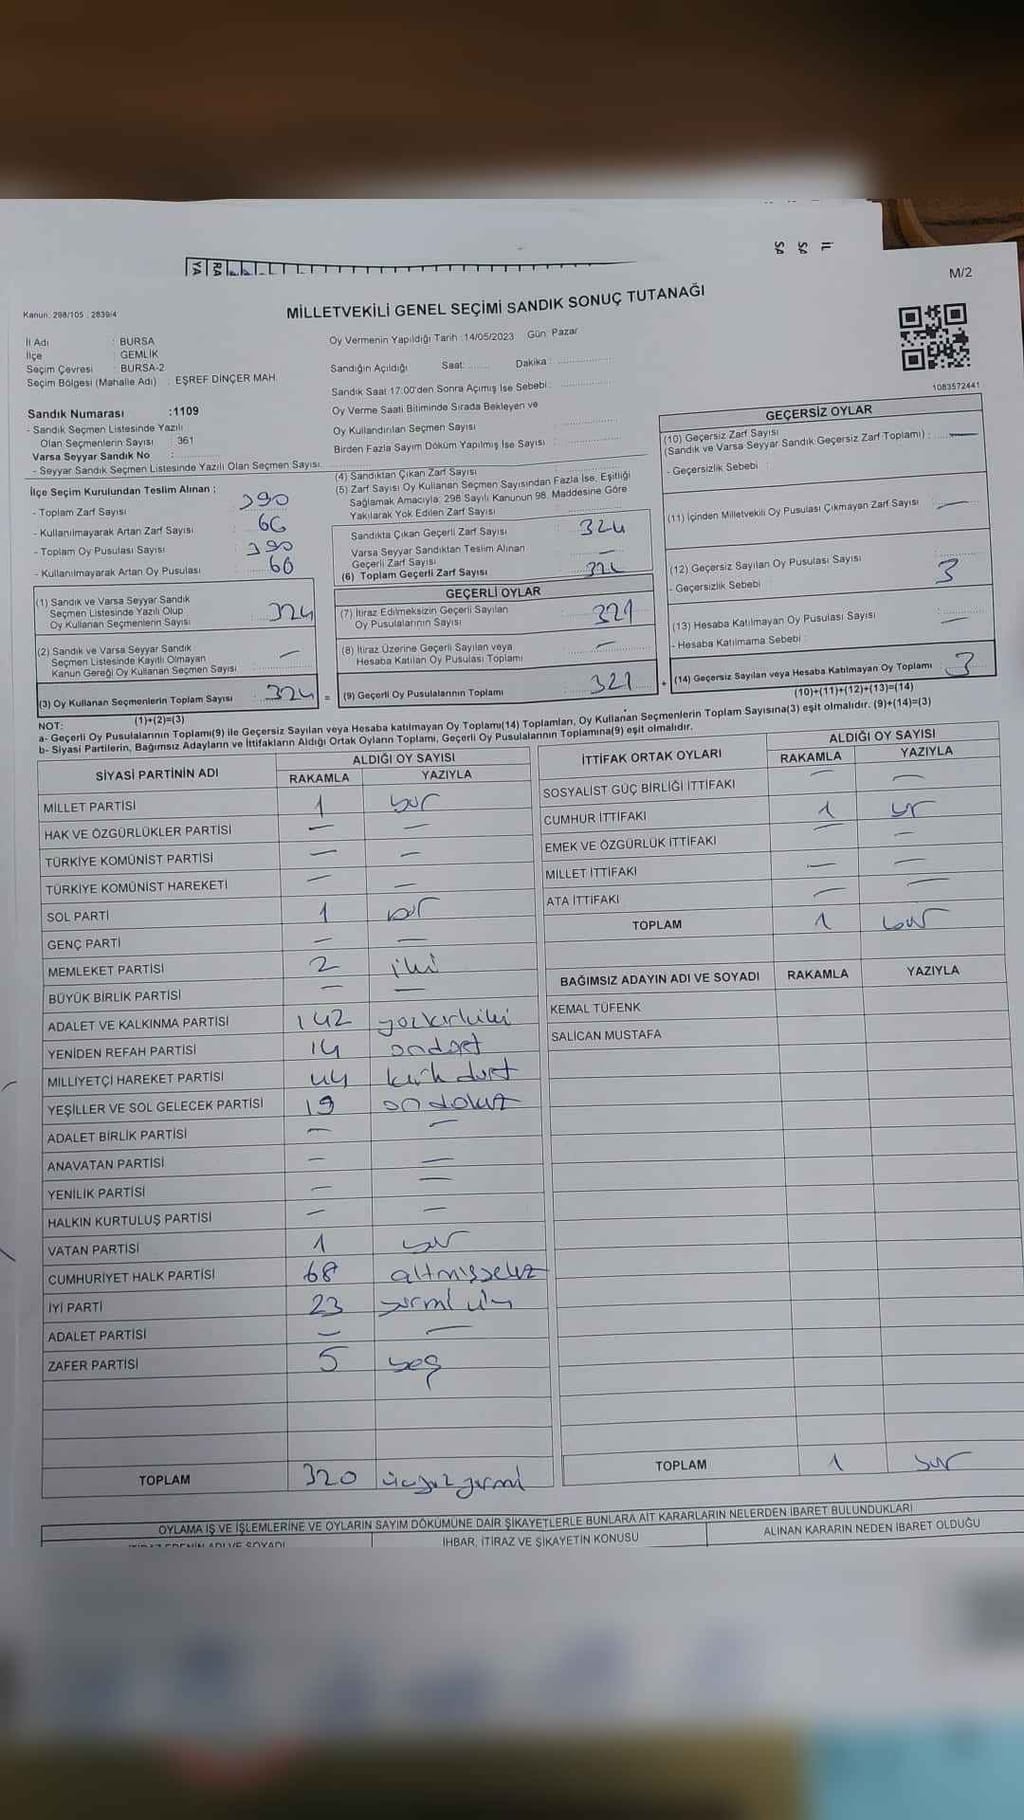 M/2
Kanun: 298/105 . 2839/4
MİLLETVEKİLİ GENEL SEÇİMİ SANDIK SONUÇ TUTANAĞI
İl Adı : BURSA
İlçe : GEMLİK
Seçim Çevresi : BURSA-2
Seçim Bölgesi (Mahalle Adı) : EŞREF DİNÇER MAH.
Oy Vermenin Yapıldığı Tarih :14/05/2023 Gün: Pazar
Sandığın Açıldığı Saat: Dakika :
Sandık Saat 17:00'den Sonra Açımış İse Sebebi :
Oy Verme Saati Bitiminde Sırada Bekleyen ve
Oy Kullandırılan Seçmen Sayısı
Birden Fazla Sayım Döküm Yapılmış İse Sayısı :
1083572441
Sandık Numarası :1109
- Sandık Seçmen Listesinde Yazılı
Olan Seçmenlerin Sayısı : 361
Varsa Seyyar Sandık No :
- Seyyar Sandık Seçmen Listesinde Yazılı Olan Seçmen Sayısı:
İlçe Seçim Kurulundan Teslim Alınan :
- Toplam Zarf Sayısı 390
- Kullanılmayarak Artan Zarf Sayısı 66
- Toplam Oy Pusulası Sayısı 390
- Kullanılmayarak Artan Oy Pusulası 66
(1) Sandık ve Varsa Seyyar Sandık
Seçmen Listesinde Yazılı Olup
Oy Kullanan Seçmenlerin Sayısı 324
(2) Sandık ve Varsa Seyyar Sandık
Seçmen Listesinde Kayıtlı Olmayan
Kanun Gereği Oy Kullanan Seçmen Sayısı —
(3) Oy Kullanan Seçmenlerin Toplam Sayısı 324 =
(1)+(2)=(3)
(4) Sandıktan Çıkan Zarf Sayısı
(5) Zarf Sayısı Oy Kullanan Seçmen Sayısından Fazla İse, Eşitliği
Sağlamak Amacıyla, 298 Sayılı Kanunun 98. Maddesine Göre
Yakılarak Yok Edilen Zarf Sayısı
Sandıkta Çıkan Geçerli Zarf Sayısı 324
Varsa Seyyar Sandıktan Teslim Alınan
Geçerli Zarf Sayısı —
(6) Toplam Geçerli Zarf Sayısı 324
GEÇERLİ OYLAR
(7) İtiraz Edilmeksizin Geçerli Sayılan
Oy Pusulalarının Sayısı 321
(8) İtiraz Üzerine Geçerli Sayılan veya
Hesaba Katılan Oy Pusulası Toplamı —
(9) Geçerli Oy Pusulalarının Toplamı 321 +
GEÇERSİZ OYLAR
(10) Geçersiz Zarf Sayısı
(Sandık ve Varsa Seyyar Sandık Geçersiz Zarf Toplamı) : —
- Geçersizlik Sebebi :
(11) İçinden Milletvekili Oy Pusulası Çıkmayan Zarf Sayısı —
(12) Geçersiz Sayılan Oy Pusulası Sayısı 3
- Geçersizlik Sebebi
(13) Hesaba Katılmayan Oy Pusulası Sayısı —
- Hesaba Katılmama Sebebi :
(14) Geçersiz Sayılan veya Hesaba Katılmayan Oy Toplamı 3
(10)+(11)+(12)+(13)=(14)
NOT:
a- Geçerli Oy Pusulalarının Toplamı(9) ile Geçersiz Sayılan veya Hesaba katılmayan Oy Toplamı(14) Toplamları, Oy Kullanan Seçmenlerin Toplam Sayısına(3) eşit olmalıdır. (9)+(14)=(3)
b- Siyasi Partilerin, Bağımsız Adayların ve İttifakların Aldığı Ortak Oyların Toplamı, Geçerli Oy Pusulalarının Toplamına(9) eşit olmalıdır.
SİYASİ PARTİNİN ADI ALDIĞI OY SAYISI
RAKAMLA YAZIYLA
MİLLET PARTİSİ 1 bir
HAK VE ÖZGÜRLÜKLER PARTİSİ — —
TÜRKİYE KOMÜNİST PARTİSİ — —
TÜRKİYE KOMÜNİST HAREKETİ — —
SOL PARTİ 1 bir
GENÇ PARTİ — —
MEMLEKET PARTİSİ 2 iki
BÜYÜK BİRLİK PARTİSİ — —
ADALET VE KALKINMA PARTİSİ 142 yüzkırkiki
YENİDEN REFAH PARTİSİ 14 ondört
MİLLİYETÇİ HAREKET PARTİSİ 44 kırk dört
YEŞİLLER VE SOL GELECEK PARTİSİ 19 ondokuz
ADALET BİRLİK PARTİSİ — —
ANAVATAN PARTİSİ — —
YENİLİK PARTİSİ — —
HALKIN KURTULUŞ PARTİSİ — —
VATAN PARTİSİ 1 bir
CUMHURİYET HALK PARTİSİ 68 altmışsekiz
İYİ PARTİ 23 yirmi üç
ADALET PARTİSİ — —
ZAFER PARTİSİ 5 beş
TOPLAM 320 üçyüz yirmi
İTTİFAK ORTAK OYLARI ALDIĞI OY SAYISI
RAKAMLA YAZIYLA
SOSYALİST GÜÇ BİRLİĞİ İTTİFAKI — —
CUMHUR İTTİFAKI 1 bir
EMEK VE ÖZGÜRLÜK İTTİFAKI — —
MİLLET İTTİFAKI — —
ATA İTTİFAKI — —
TOPLAM 1 bir
BAĞIMSIZ ADAYIN ADI VE SOYADI RAKAMLA YAZIYLA
KEMAL TÜFENK
SALİCAN MUSTAFA
TOPLAM 1 bir
OYLAMA İŞ VE İŞLEMLERİNE VE OYLARIN SAYIM DÖKÜMÜNE DAİR ŞİKAYETLERLE BUNLARA AİT KARARLARIN NELERDEN İBARET BULUNDUKLARI
İTİRAZ EDENİN ADI VE SOYADI İHBAR, İTİRAZ VE ŞİKAYETİN KONUSU ALINAN KARARIN NEDEN İBARET OLDUĞU